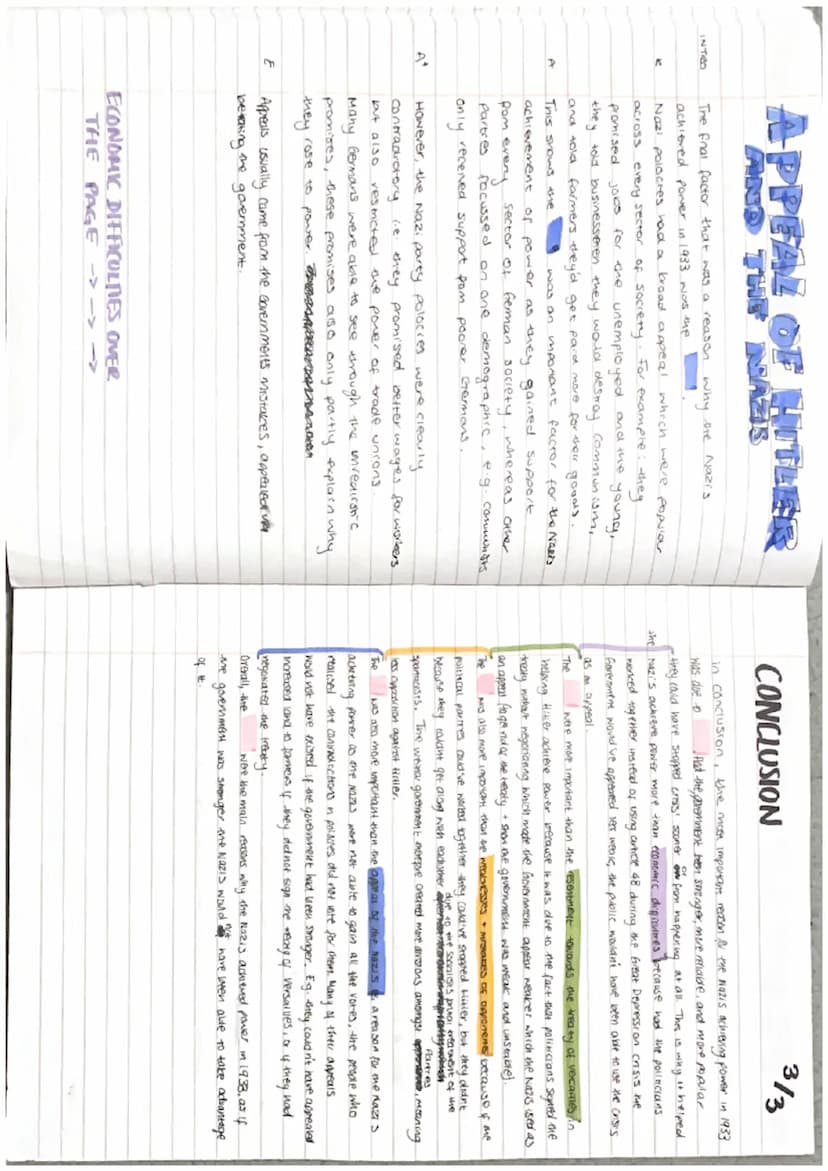 APPEAL OF HITLER
AND THE NAZIS
INTRO The final factor that was a reason why the Nazis
achieved power in 1933 was the
K Nazi polocies had a broad appeal which were popular
across every sector of society. For example: they
promised jobs for the unemployed and the young,
they told businessmen they would destroy communism,
and told farmers they'd get paid more for their goods.
A This shows the was an important factor for the Nazis
achievement of power as they gained support
from every sector of German society, whereas other
parties focussed on one demographic, e.g. communists
only received support from poorer Germans.
A+ However, the Nazi party polocies were clearly
contradictory i.e. they promised better wages for workers
but also restricted the power of trade unions.
Many Germans were able to see through the unrealistic
promises, these promises also only partly explain why
they rose to power.
E Appeals usually come from the Governments mistakes,
the government.
ECONOMIC DIFFICULTIES OVER
THE PAGE -> -> ->
3/3
CONCLUSION
In conclusion, the most important reason for the Nazis achieving power in 1933
was due to . Had the government been stronger, more reliable, and more popular
they could have stopped crisis' sooner or from happening at all. This is why it helped
the Nazi's achieve power more than economic difficulties because had the politicians
worked together instead of using article 48 during the Great Depression crisis the
Government would've appeared less weak, the public wouldn't have been able to use the crisis
as an appeal.
The were more important than the resentment towards the treaty of Versailles in
helping Hitler achieve power because it was due to the fact that politicians signed the
treaty without negotiating which made the Government appear weaker which the Nazis used as
an appeal (e.g. the treaty + than the government was weak and unstable).
The was also more important than the weaknesses + mistakes of opponents because if the
political parties could've worked together they could've stopped Hitler, but they didn't
because they couldn't get along with eachother due to the socialists prior treatment of the
spartacists. The weaker government created more divisions amongst Parties, meaning
less opposition against Hitler.
The was also more important than the appeal of the Nazis as a reason for the Nazi's
achieving power as the Nazis were not able to gain all the votes, the people who
realised the contradictions in policies did not vote for them. Many of their appeals
would not have existed if the government had been stronger. E.g. they couldn't have appealed
increased land to farmers if they did not sign the treaty of Versailles, or if they had
negotiated the treaty.
Overall, the were the main reasons why the Nazis achieved power in 1933, as if
the government was stronger the Nazis would not have been able to take advantage
of it.